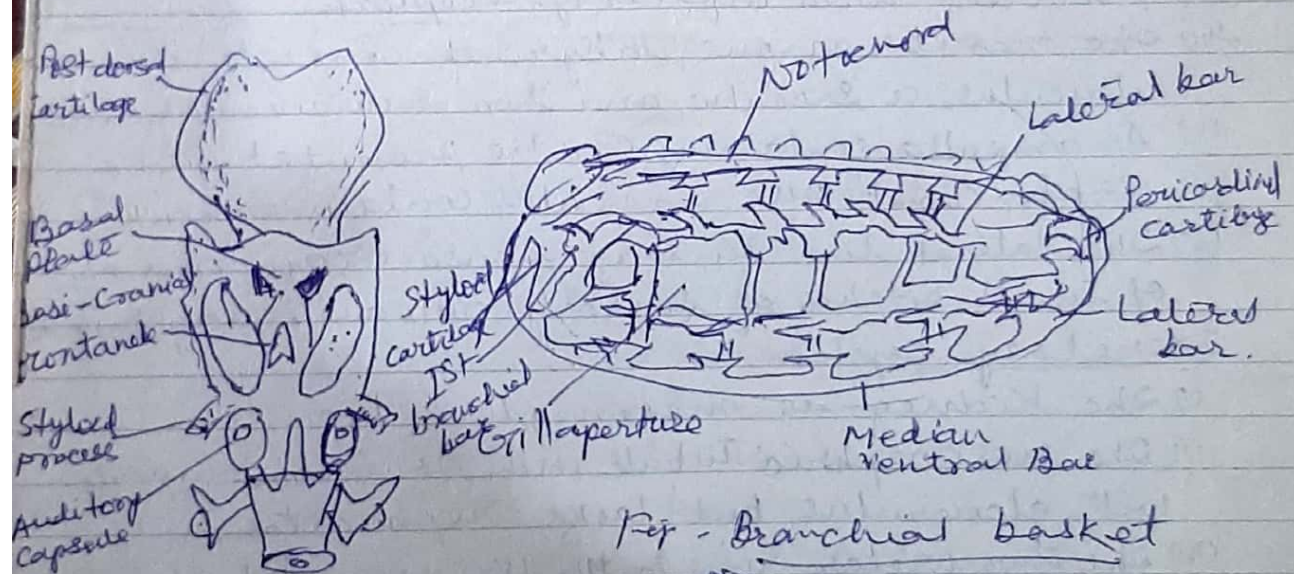 Post dorsal
Cartilage
Basal
Plate
Basi-Cranial
Frontanele
Styloid
process
Auditory
Capsule
Notochord
Lateral bar
Pericardial
cartilage
Styloid
cartilage
Ist
branchial
bar
Gill aperture
Lateral
bar.
Median
ventral Bar
Fig - Branchial basket